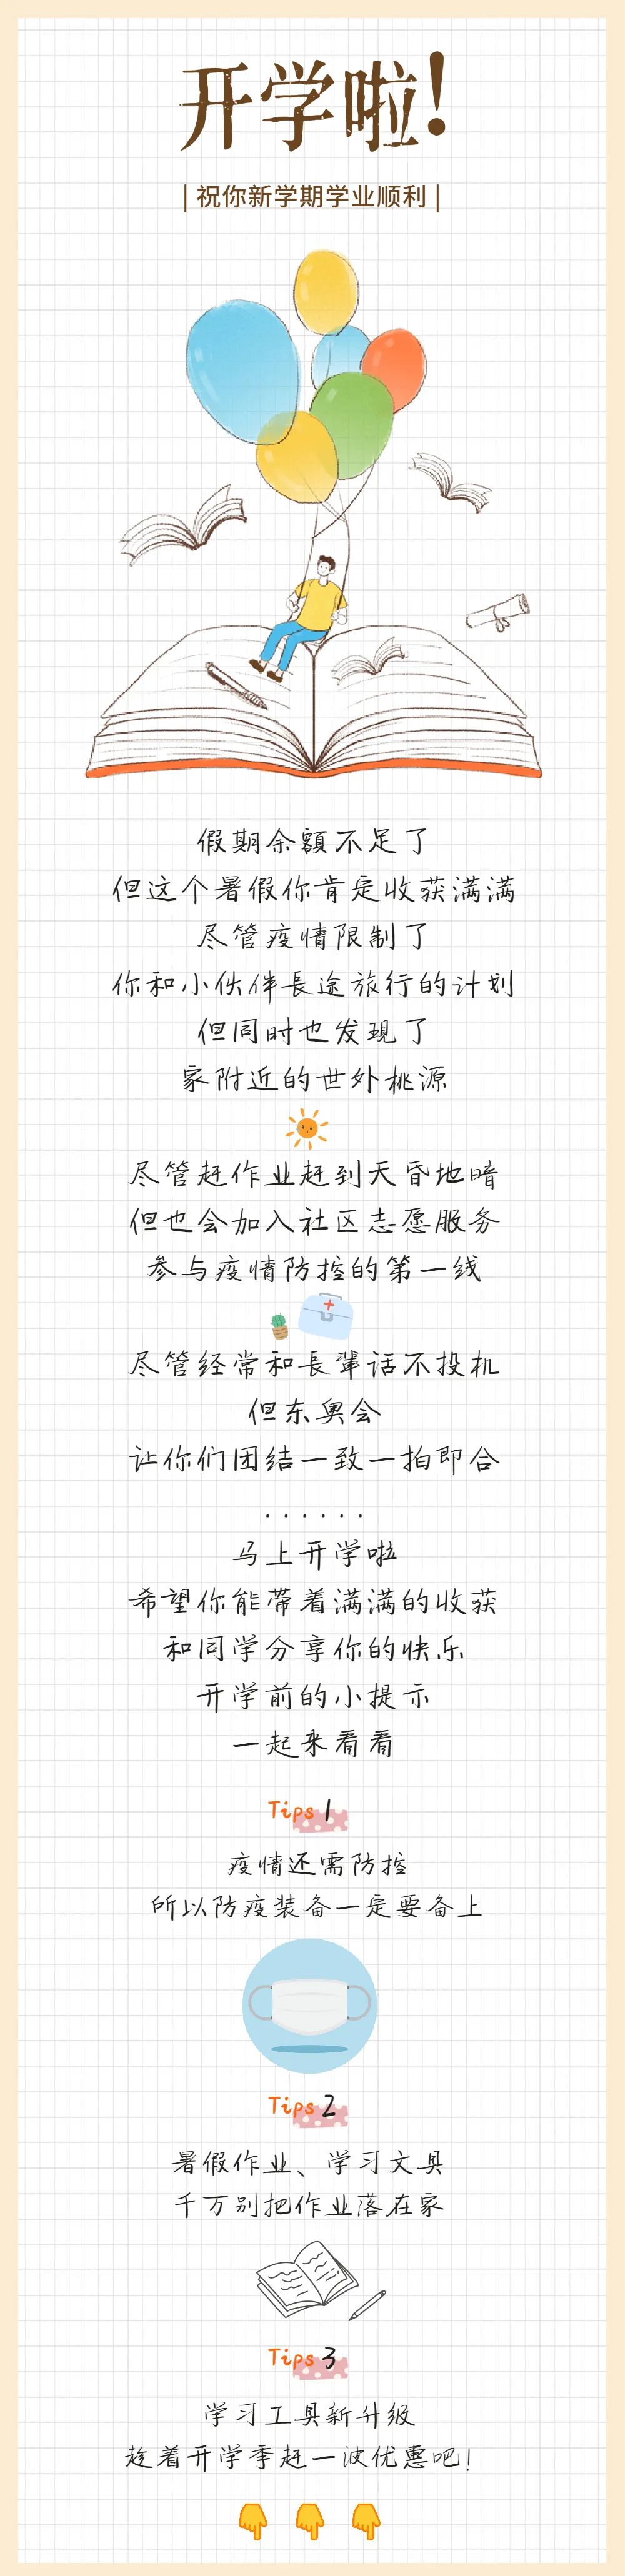 开学啦!
| 祝你新学期学业顺利 |
假期余額不足了
但这个暑假你肯定收获满满
尽管疫情限制了
你和小伙伴長途旅行的计划
但同时也发现了
家附近的世外桃源
尽管赶作业赶到天昏地暗
但也会加入社区志愿服务
参与疫情防控的第一线
尽管经常和長辈话不投机
但东奥会
让你们团结一致一拍即合
......
马上开学啦
希望你能带着满满的收获
和同学分享你的快乐
开学前的小提示
一起来看看
Tips 1
疫情还需防控
所以防疫装备一定要备上
Tips 2
暑假作业、学习文具
千万别把作业落在家
Tips 3
学习工具新升级
趁着开学季赶一波优惠吧!